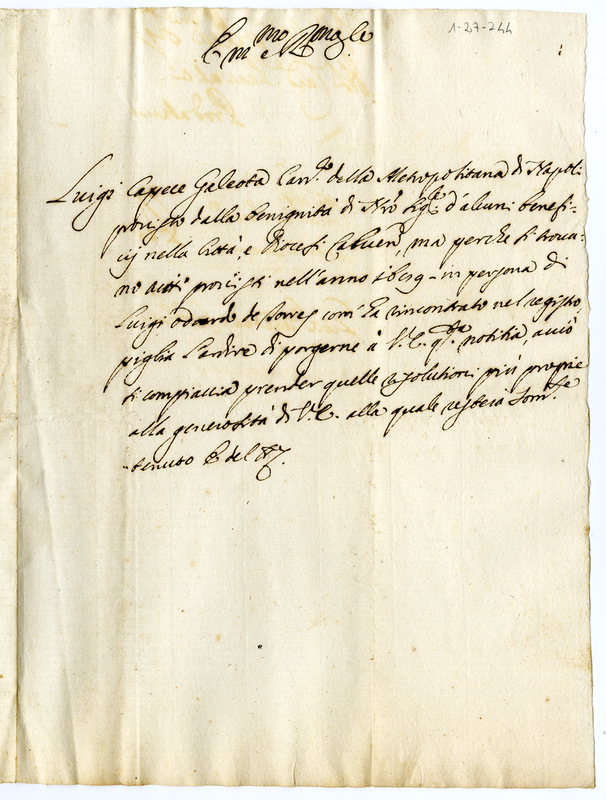 1-27-244
Em.mo e R.mo Sig.re
Luigi Capece Galeota Can.co della Metropolitana di Napoli
provisto dalla benignità di N̄ro Sig.re d'alcuni benefi-
cij nella Città, e Diocesi ma perche si trova-
no provisti nell'anno in persona di
Luigi Odoardo de Torres com'ha rincontrato nel registro,
piglia l'ardire di porgerne à V.E. q.sta notitia, acciò
si compiaccia prender quelle resolutioni più proprie
alla generosità di V.E. alla quale resterà som.te
tenuto